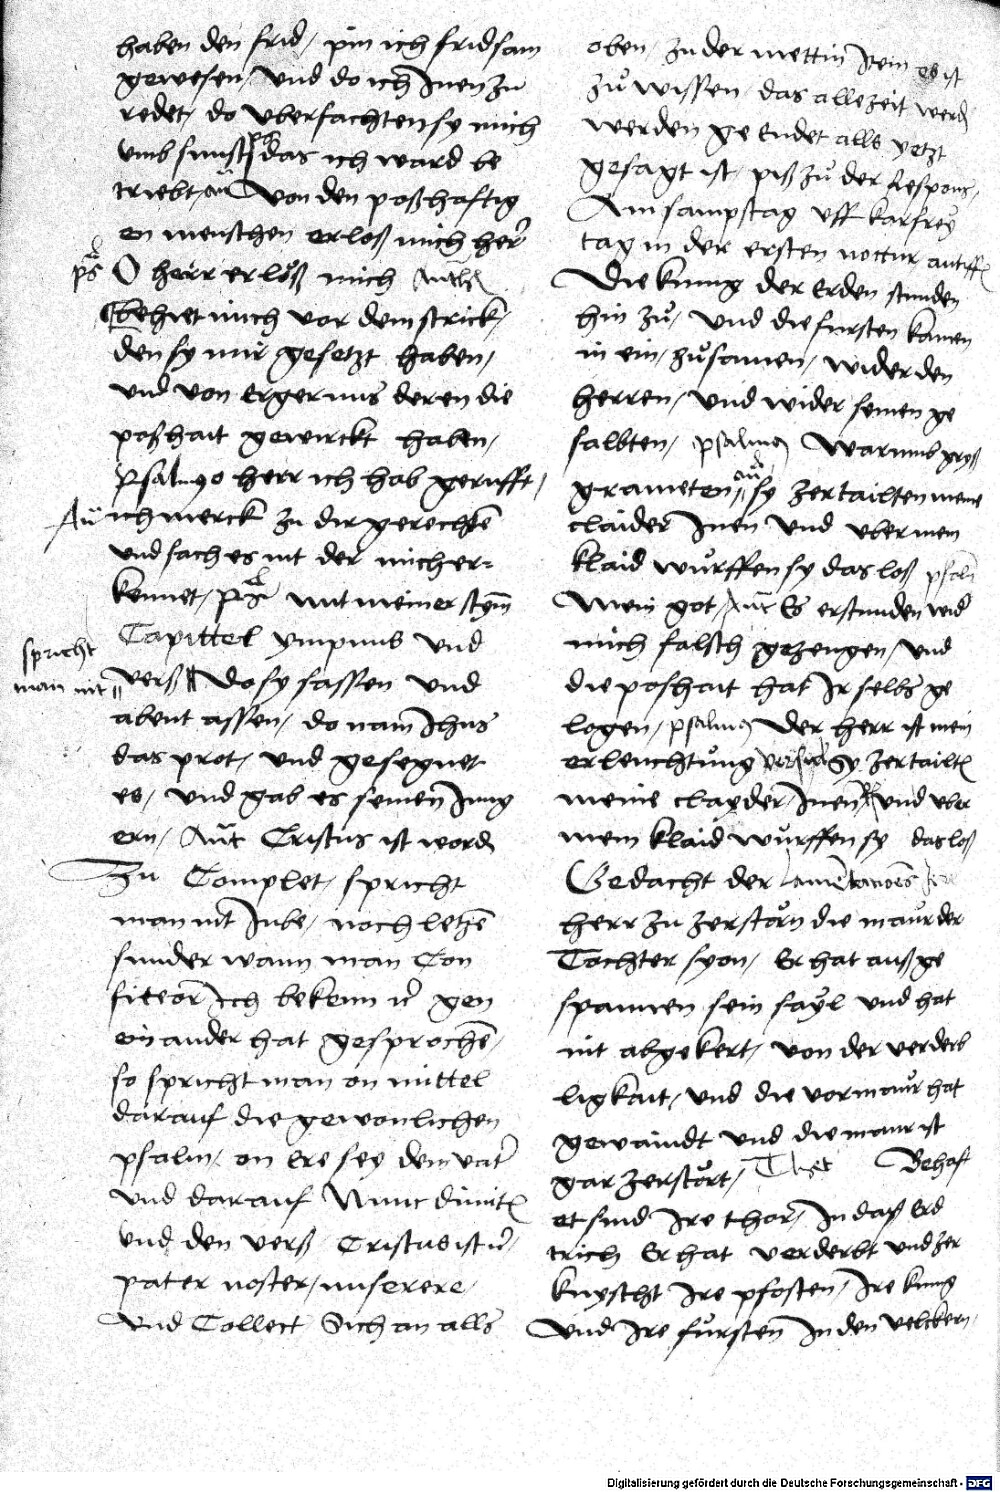 haben den frid / pin ich fridsam
gewesen / Vnd do ich Inen zu
redet / do Vberfachten sy mich
vmb sunst das ich ward be
triebt / Von den poßhaftig
en menschen erloß mich her
ps O herr erlöß mich
behiet mich vor dem strick /
den sy mir gesetzt haben /
vnd von Ergernus deren die
poßhait gewirckt haben /
Psalmus o herr ich hab gerufft /
ich merck zu dir gerechten
vnd sach es nit der mich er=
kennet / ps mit meiner stym
Capittel ympnus vnd
spricht
man nit
verß Do sy sassen vnd
abent assen / do nam Ihus
das prot / vnd gesegnet
es / vnd gab es seinen Jung
ern / Ant Cristus ist word
Zu Complet / spricht
man nit Jube / noch letzen
sunder wann man Con
fiteor Ich bekenn gen
ein ander hat gesprochen /
so spricht man on mittel
darauf die gewonlichen
psalm / on Ere sey dem vater
vnd darauf Nunc dimit
Vnd den verß Cristus ist
pater noster / miserere /
Vnd Collect Sich an alls
oben / zu der mettin Item es ist
zů wissen / das alle zeit werd
werden geendet alls yetzt
gesagt ist / piß zů der Respons /
Am sampstag vff karfrey
tag in der ersten noctur antiff
Die kunig der Erden stunden
hin zů / vnd die fursten kamen
in ein / zůsamen / wider den
herren / vnd wider seinen ge
salbten / psalmus Warumb
grameten sy zertailten meine
claider Inen vnd vber mein
klaid wůrffen sy das loß psalm
Mein got / Ant Es erstunden wider
mich falsch gezeugen / vnd
die poshait hat Ir selbs ge
logen / psalmus Der herr ist mein
erleuchtůng Sy zertailt
meine clayder / Inen vnd vber
mein klaid wůrffen sy das loß
Gedacht der
herr zu zerstörn die maůr der
Tochter syon / Er hat auß ge
spannen sein sayl vnd hat
nit abgekert / von der verderb
ligkait / vnd die vormaůr hat
gewaindt vnd die maur ist
gar zerstört / Behaft
et sind Ire thor / In daß Erd
trich Er hat verderbt vnd zer
knyscht Ire pfosten / Ire kung
Vnd Ire fursten In den velckern /
Digitalisierung gefördert durch die Deutsche Forschungsgemeinschaft - DFG